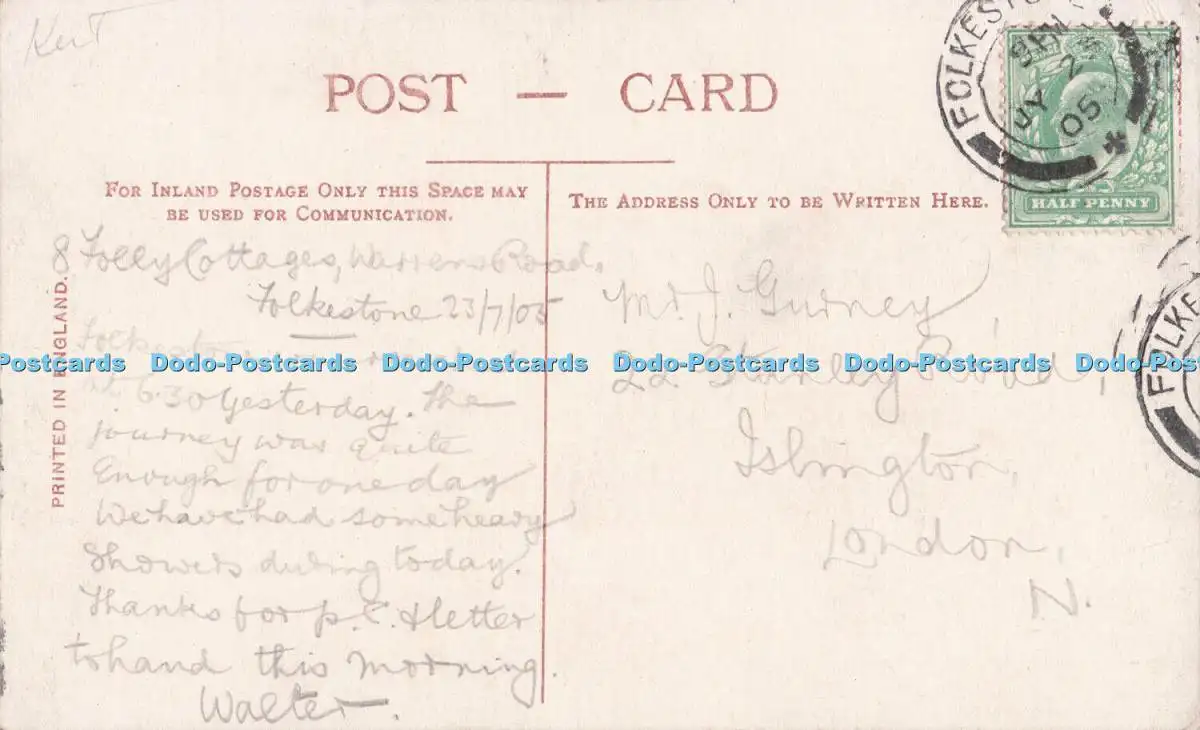 Kent
POST — CARD
FOR INLAND POSTAGE ONLY THIS SPACE MAY
BE USED FOR COMMUNICATION.
THE ADDRESS ONLY TO BE WRITTEN HERE.
PRINTED IN ENGLAND.
8 Folly Cottages, Warrens Road,
Folkestone 23/7/05
at 6.30 yesterday. The
journey was quite
Enough for one day
We have had some heavy
showers during today.
Thanks for p.c. & letter
to hand this morning.
Walter.
Mr. J. Gurney,
22 Stanley Road,
Islington,
London,
N.
FOLKESTO
JY 2
05
HALF PENNY
FOLKE
Dodo-Postcards Dodo-Postcards Dodo-Postcards Dodo-Postcards Dodo-Postcards Dodo-Postcards